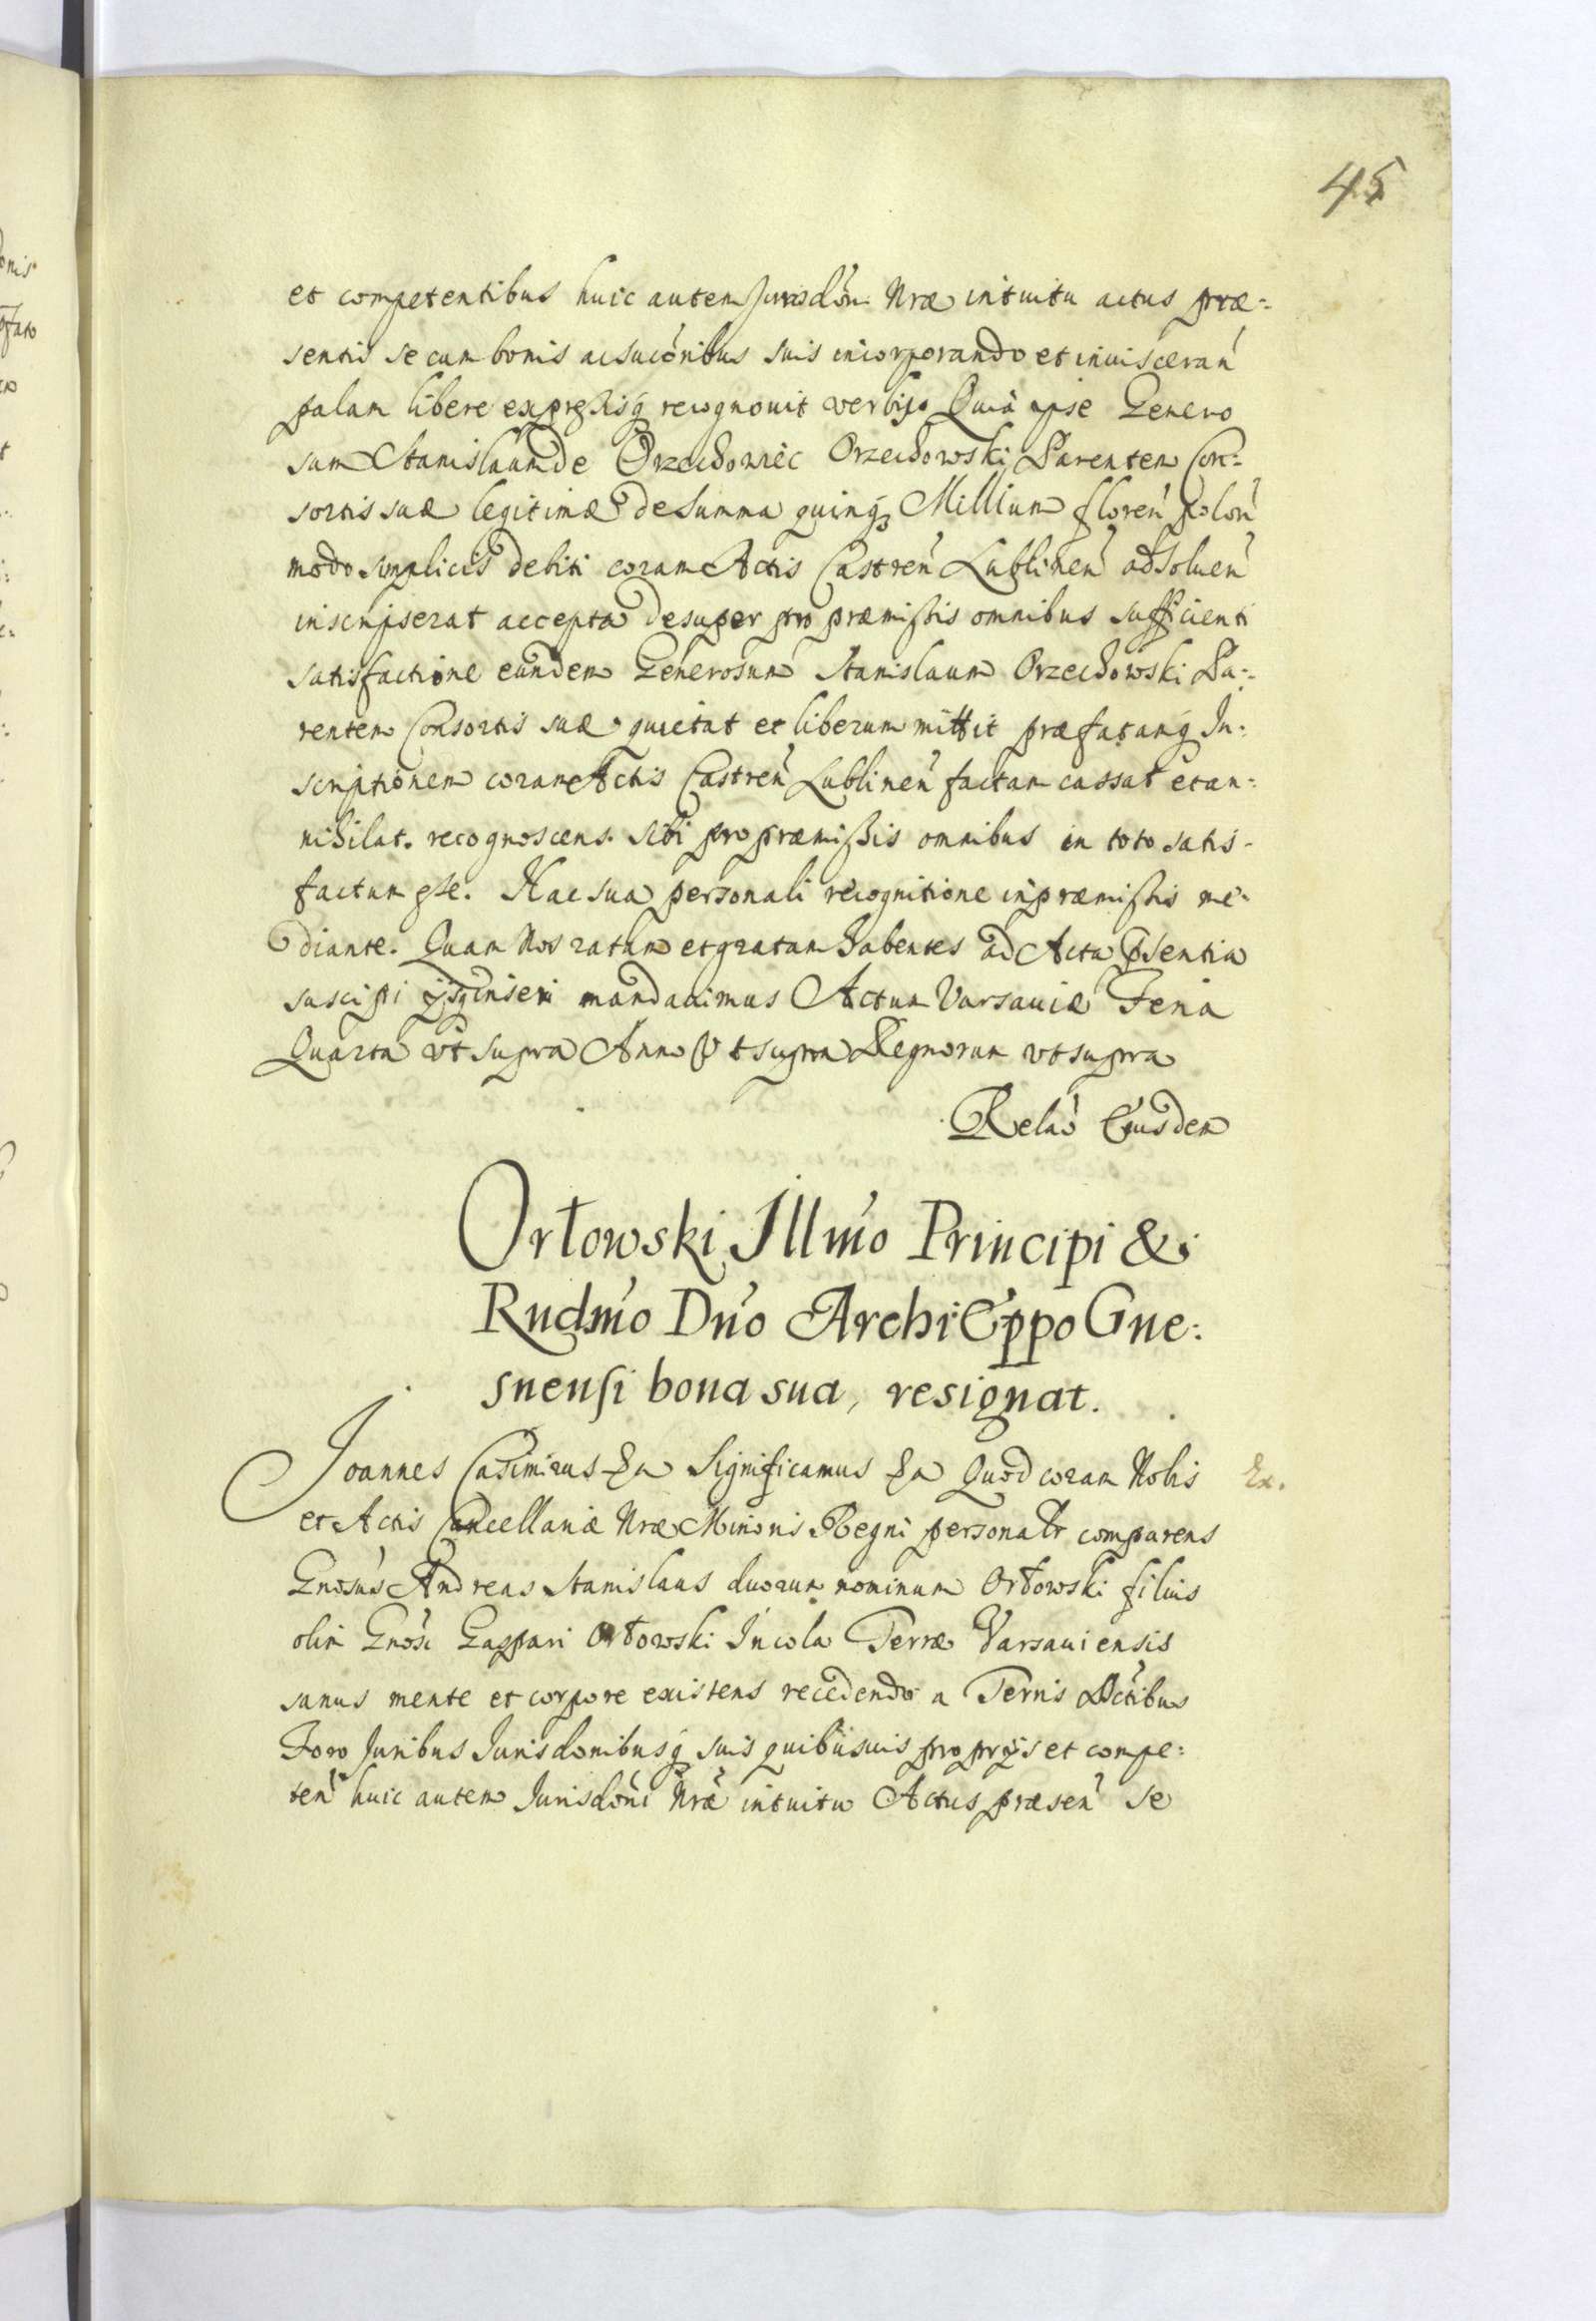 45
et competentibus huic autem Jurisdōni Nræ intuitu actus præ:
sentis se cum bonis ac sucōribus suis incorporando et inuisceran̄
palam libere expressisq̨ recognouit verbis. Quia ipse Genero
sum Stanislaum de Orzechowiec Orzechowski Parentem Con:
sortis suæ legitimæ de summa quinq̨ Millium floren̄ polon̄
modo simplicis debiti coram Actis Castren̄ Lublinen̄ adsoluen̄
inscripserat accepta desuper pro præmissis omnibus sufficienti
satisfactione eundem Generosum Stanislaum Orzechowski Pa:
rentem Consortis suæ quietat et liberum mittit præfatamq̨ In:
scriptionem coram Actis Castren̄ Lublinen̄ factam cassat et an:
nihilat. recognoscens. sibi pro præmissis omnibus in toto satis-
factum esse. Hac sua personali recognitione in præmissis me:
diante. Quam Nos ratam et gratam habentes ad Acta p̄sentia
suscipi ijsq̨ inseri mandauimus Actum Varsauiæ Feria
Quarta vt supra Anno Vt supra Regnorum vt supra
Relaō Eiusdem
Orłowski Illm̄o Principi &
Rndm̄o Dn̄o ArchiEppo Gne:
snensi bona sua, resignat.
Joannes Casimirus Ex Significamus Ex Quod coram Nobis
Ex.
et Actis Cancellariæ Nræ Minoris Regni personalr comparens
Gnosus Andreas Stanislaus duorum nominum Orłowski filius
olim Gnosi Gaspari Orłowski Incola Terræ Varsauiensis
sanus mente et corpore existens recedendo a Terris Dctibus
Foro Juribus Jurisdonibusq̨ suis quibusuis proprijs et compe:
ten̄ huic autem Jurisdōni Nræ intuitu Actus præsen̄ se